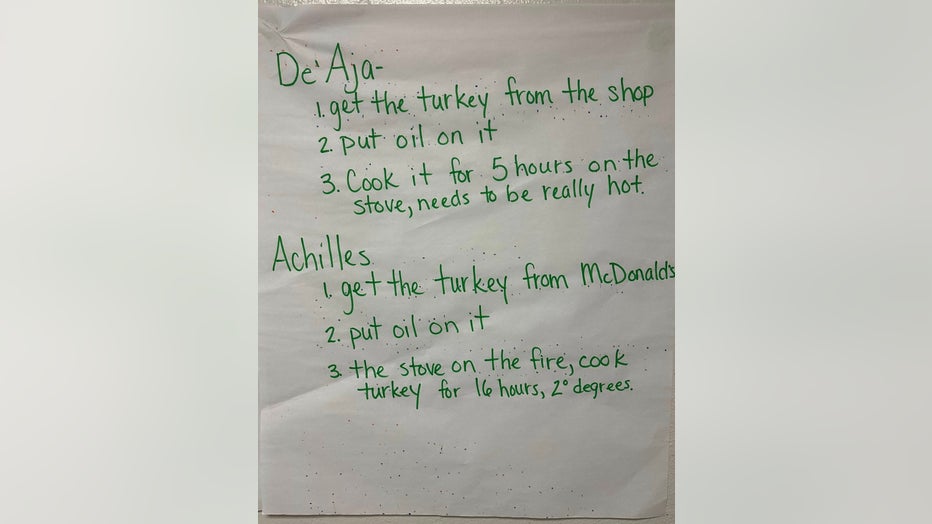 De'Aja-
1. get the turkey from the shop
2. put oil on it
3. Cook it for 5 hours on the
stove, needs to be really hot.
Achilles
1. get the turkey from McDonalds
2. put oil on it
3. the stove on the fire, cook
turkey for 16 hours, 2° degrees.